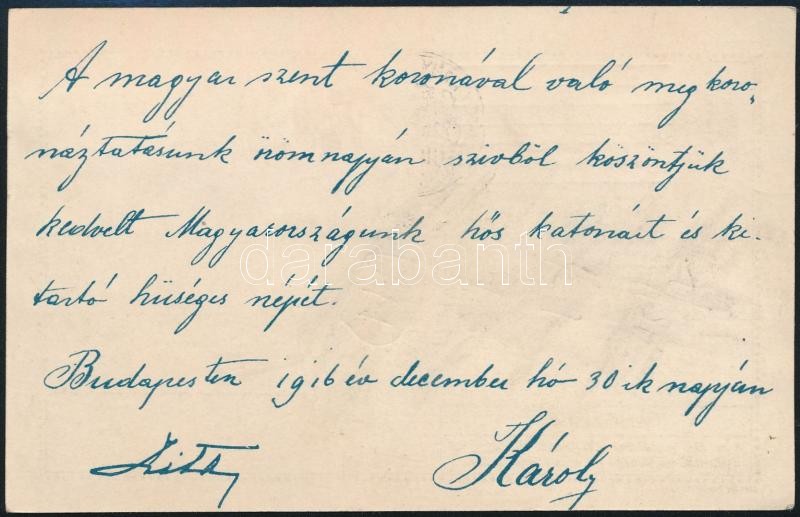 A magyar szent koronával való megkoro„
náztatásunk örömnapján szivből köszöntjük
kedvelt Magyarországunk hős katonáit és ki-
tartó hüséges népét.
Budapesten 1916 év december hó 30 ik napján
Zita Károly
darabanth